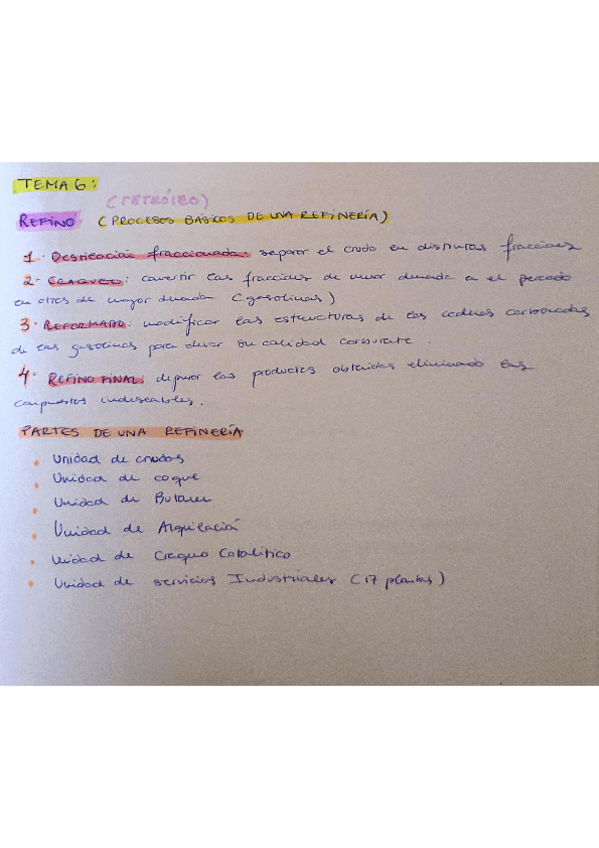 TEMA 6:
(PETRÓLEO)
REFINO (PROCESOS BÁSICOS DE UNA REFINERÍA)
1- Destilación fraccionada: separar el crudo en distintas fracciones
2- CRAQUEO: convertir las fracciones de menor demanda en el mercado
en otras de mayor demanda (gasolinas)
3- REFORMADO: modificar las estructuras de las cadenas carbonadas
de las gasolinas para elevar su calidad carburante.
4- REFINO FINAL: depurar los productos obtenidos eliminando los
compuestos indeseables.
PARTES DE UNA REFINERÍA
• Unidad de crudos
• Unidad de coque
• Unidad de Butamer
• Unidad de Alquilación
• Unidad de Craqueo Catalítico
• Unidad de servicios Industriales (17 plantas)